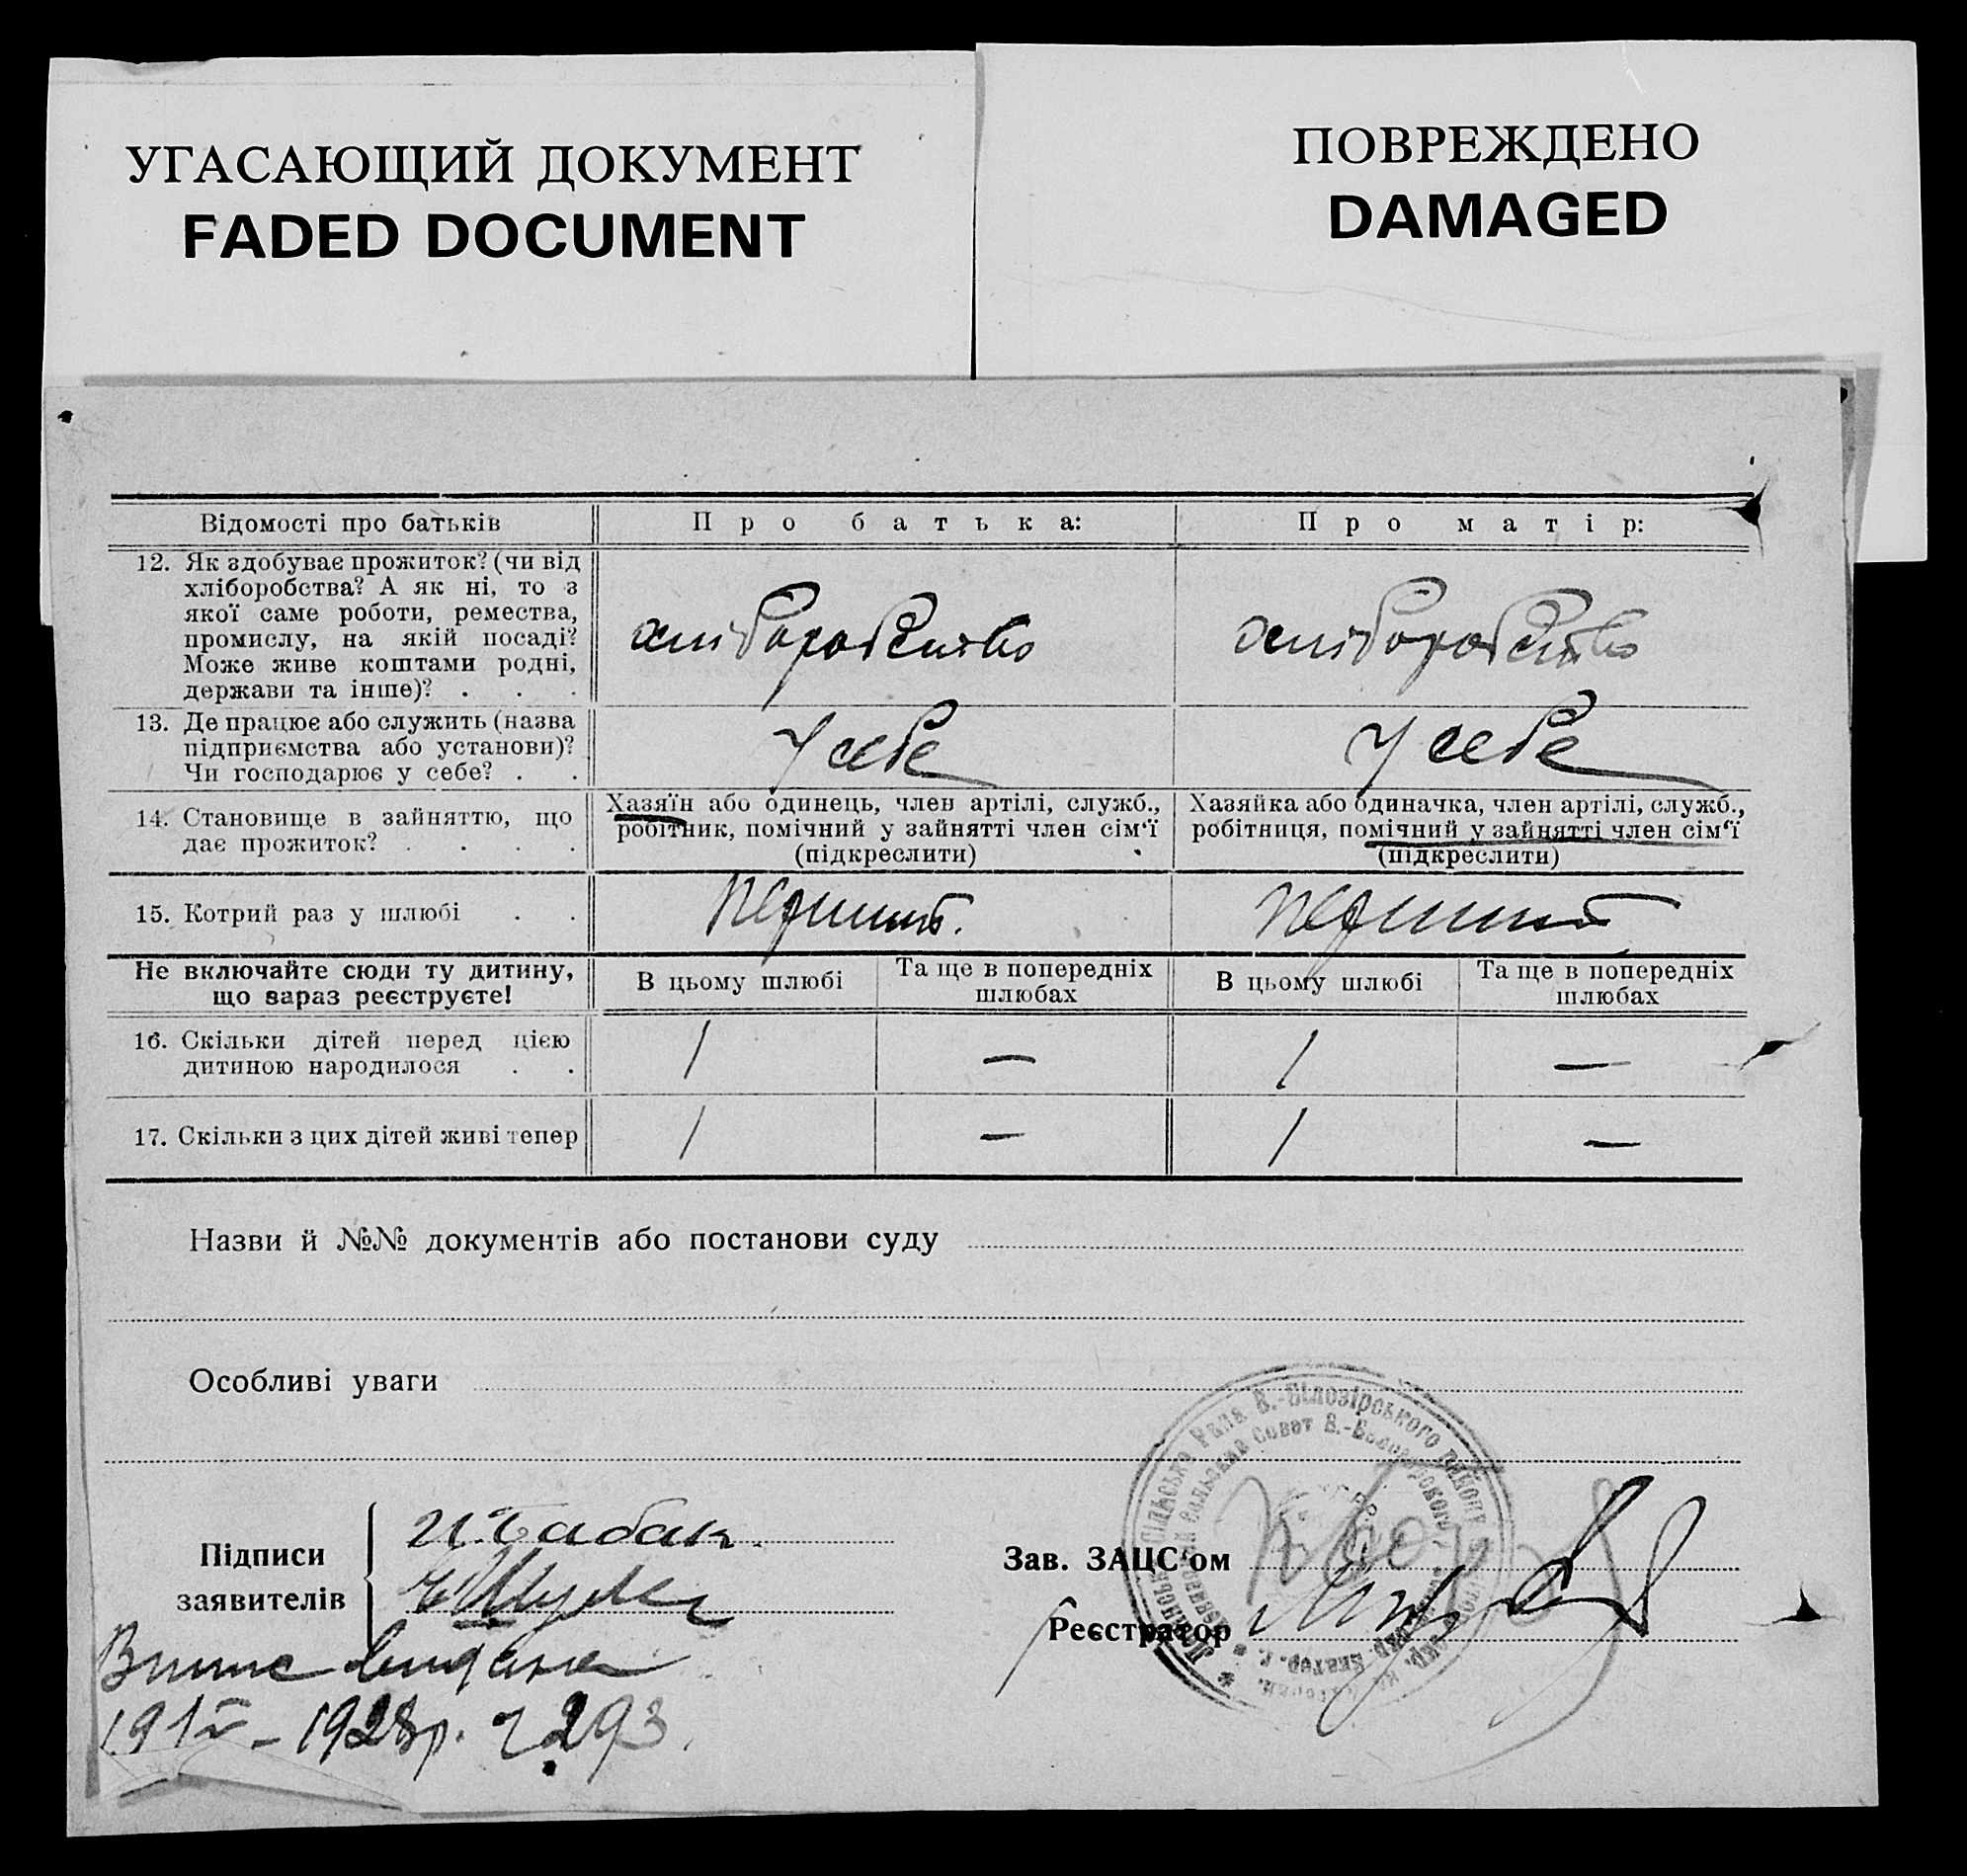 УГАСАЮЩИЙ ДОКУМЕНТ
FADED DOCUMENT
ПОВРЕЖДЕНО
DAMAGED
Відомості про батьків
Про батька:
Про матір:
12. Як здобуває прожиток? (чи від
хліборобства? А як ні, то з
якої саме роботи, ремества,
промислу, на якій посаді?
Може живе коштами родні,
держави та інше)? . . .
хліборобство
хліборобство
13. Де працює або служить (назва
підприємства або установи)?
Чи господарює у себе? . .
У себе
У себе
14. Становище в зайняттю, що
дає прожиток? . . . .
Хазяїн або одинець, член артілі, служб.,
робітник, помічний у зайнятті член сім‘ї
(підкреслити)
Хазяйка або одиначка, член артілі, служб.,
робітниця, помічний у зайнятті член сім‘ї
(підкреслити)
15. Котрий раз у шлюбі . .
Не включайте сюди ту дитину,
що зараз реєструєте!
В цьому шлюбі
Та ще в попередніх
шлюбах
В цьому шлюбі
Та ще в попередніх
шлюбах
16. Скільки дітей перед цією
дитиною народилося . .
1
—
1
—
17. Скільки з цих дітей живі тепер
1
—
1
—
Назви й №№ документів або постанови суду
Особливі уваги
Підписи
заявителів
И. Бабак.
Зав. ЗАЦС‘ом
Реєстратор
Рада В.-Білозірського району
Совет В.-
Випис видана
1928р. 293.